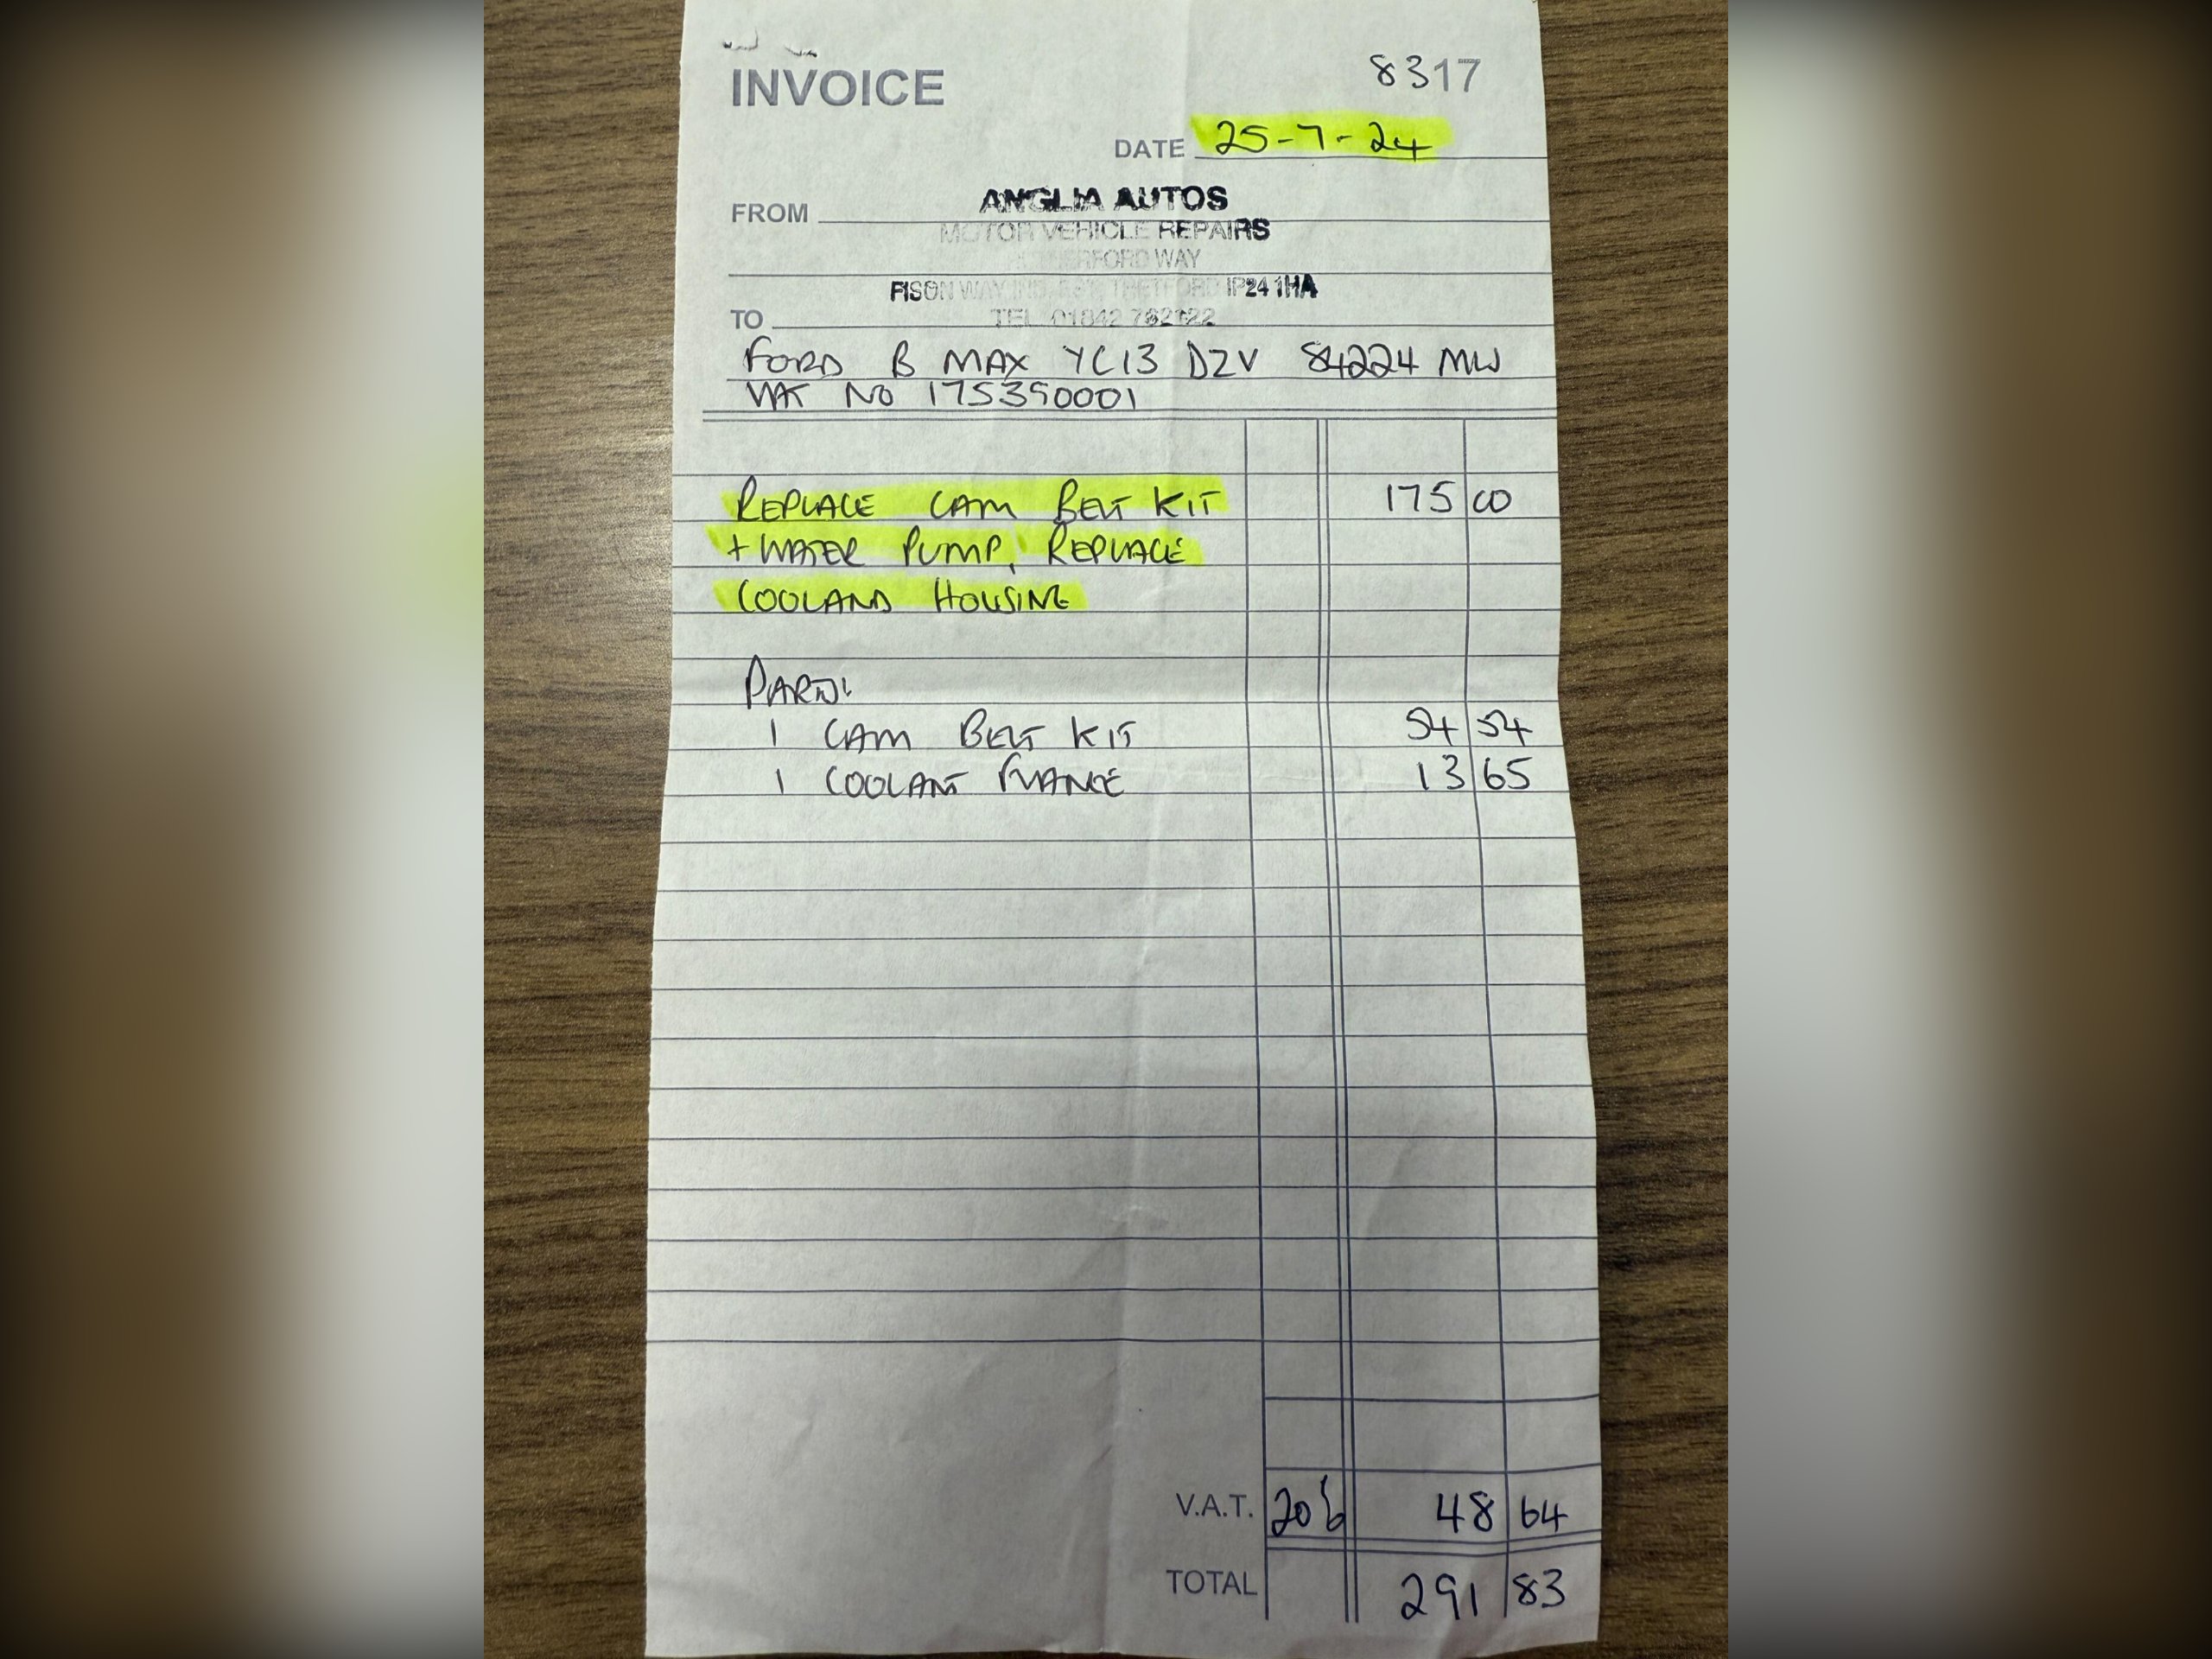 INVOICE
8317
DATE 25-7-24
FROM ANGLIA AUTOS
MOTOR VEHICLE REPAIRS
WAY
FISON WAY IND. EST. THETFORD IP24 1HA
TO TEL 01842 762122
FORD B MAX YC13 DZV 84224 MLS
VAT NO 175350001
REPLACE CAM BELT KIT 175 00
+ WATER PUMP, REPLACE
COOLAND HOUSING
PARTS
1 CAM BELT KIT 54 54
1 COOLANT FLANGE 13 65
V.A.T. 20% 48 64
TOTAL 291 83